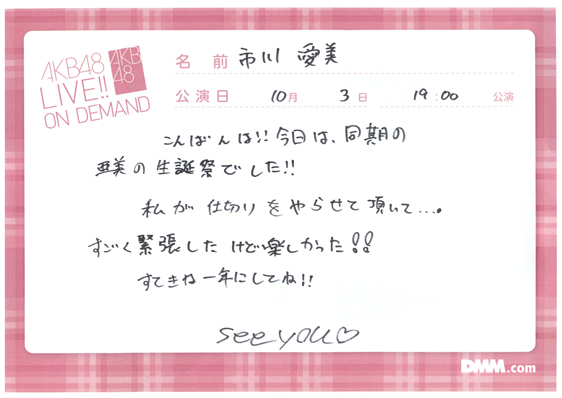 AKB48
LIVE!!
ON DEMAND
AKB
48
名 前 市川 愛美
公演日 10月 3日 19:00 公演
こんばんは!! 今日は、同期の
亜美の生誕祭でした!!
私が仕切りをやらせて頂いて....
すごく緊張したけど楽しかった!!
すてきな一年にしてね!!
see you♡
DMM.com